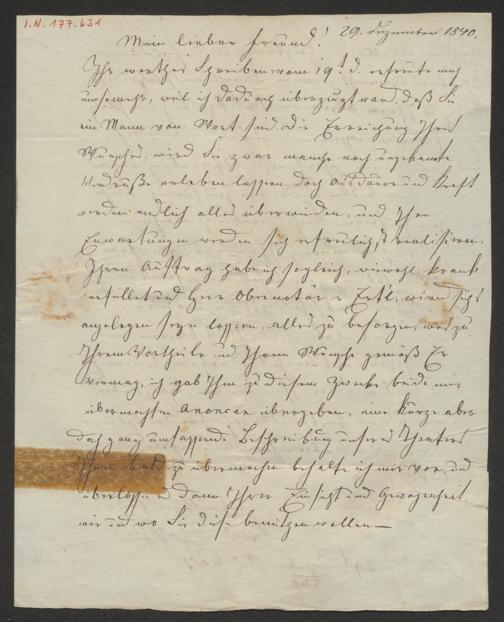 I.N. 177.631
29. Dezember 1840.
Mein lieber Freund!
Ihr werthes Schreiben vom 19t. d. erfreute mich
umsomehr, weil ich dadurch überzeugt ward, daß Sie
ein Mann von Wort sind. Die Erreichung Ihres
Wunsches, wird Sie zwar manche noch ungekannte
erleben lassen, doch Ausdauer und Kraft
werden endlich alles überwinden, und Ihre
Erwartungen werden sich erfreulichst realisiren.
Ihren Auftrag hab ich sogleich, wiewohl krank
erfüllet und Herr Obernotär v Ertl, wird sichs
angelegen seyn lassen, alles zu besorgen, was zu
Ihrem Vortheile und Ihrem Wunsche gemäß Er
vermag, ich gab Ihm zu diesem Zwecke beide mir
übermachten Anoncen übergeben, eine kurze aber
doch ganz umfassende Beschreibung unseres Theaters
Ihnen bald zu übermachen behalte ich mir vor, und
überlasse dann Ihrer Einsicht und Gewogenheit,
wie und wo Sie diese benützen wollen —